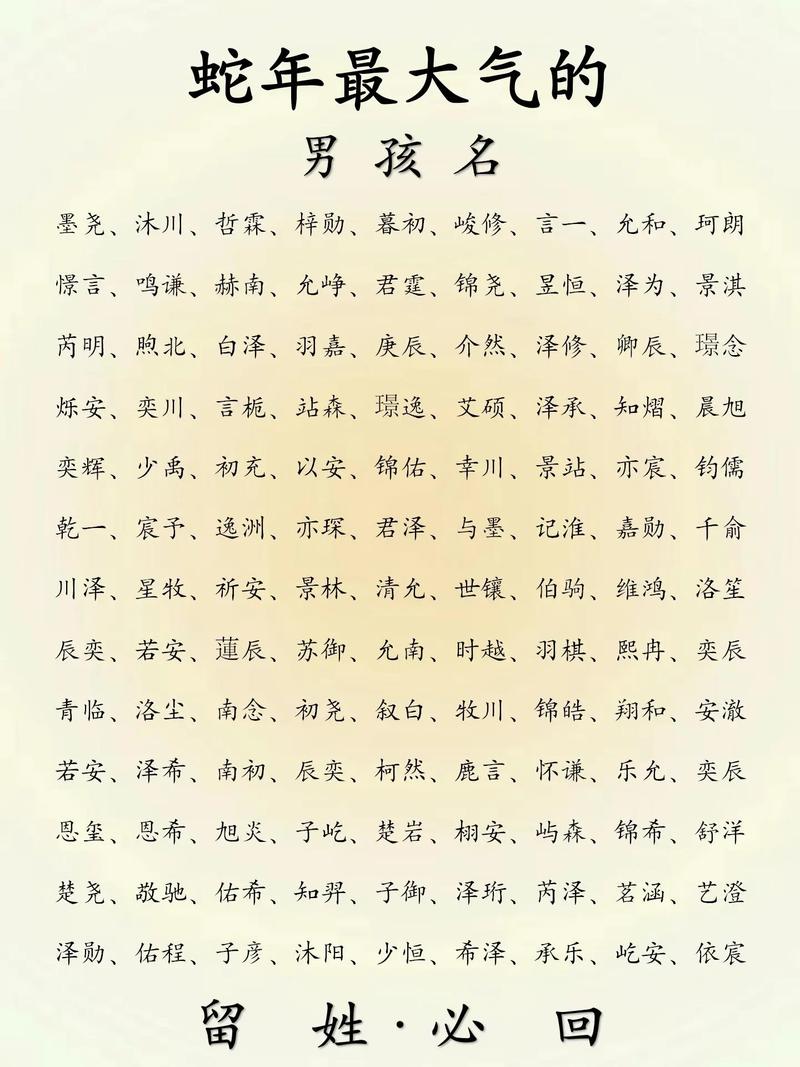 蛇年最大气的
男孩名
墨尧、沐川、哲霖、梓勋、暮初、峻修、言一、允和、珂朗
憬言、鸣谦、赫南、允峥、君霆、锦尧、昱恒、泽为、景淇
芮明、煦北、白泽、羽嘉、庚辰、介然、泽修、卿辰、璟念
烁安、奕川、言栀、站森、璟逸、艾硕、泽承、知熠、晨旭
奕辉、少禹、初充、以安、锦佑、幸川、景站、亦宸、钧儒
乾一、宸予、逸洲、亦琛、君泽、与墨、记淮、嘉勋、千俞
川泽、星牧、祈安、景林、清允、世镶、伯驹、维鸿、洛笙
辰奕、若安、蓮辰、苏御、允南、时越、羽棋、熙冉、奕辰
青临、洛尘、南念、初尧、叙白、牧川、锦皓、翔和、安澈
若安、泽希、南初、辰奕、柯然、鹿言、怀谦、乐允、奕辰
恩玺、恩希、旭炎、子屹、楚岩、栩安、屿森、锦希、舒洋
楚尧、敬驰、佑希、知羿、子御、泽珩、芮泽、茗涵、艺澄
泽勋、佑程、子彦、沐阳、少恒、希泽、承乐、屹安、依宸
留姓·必回